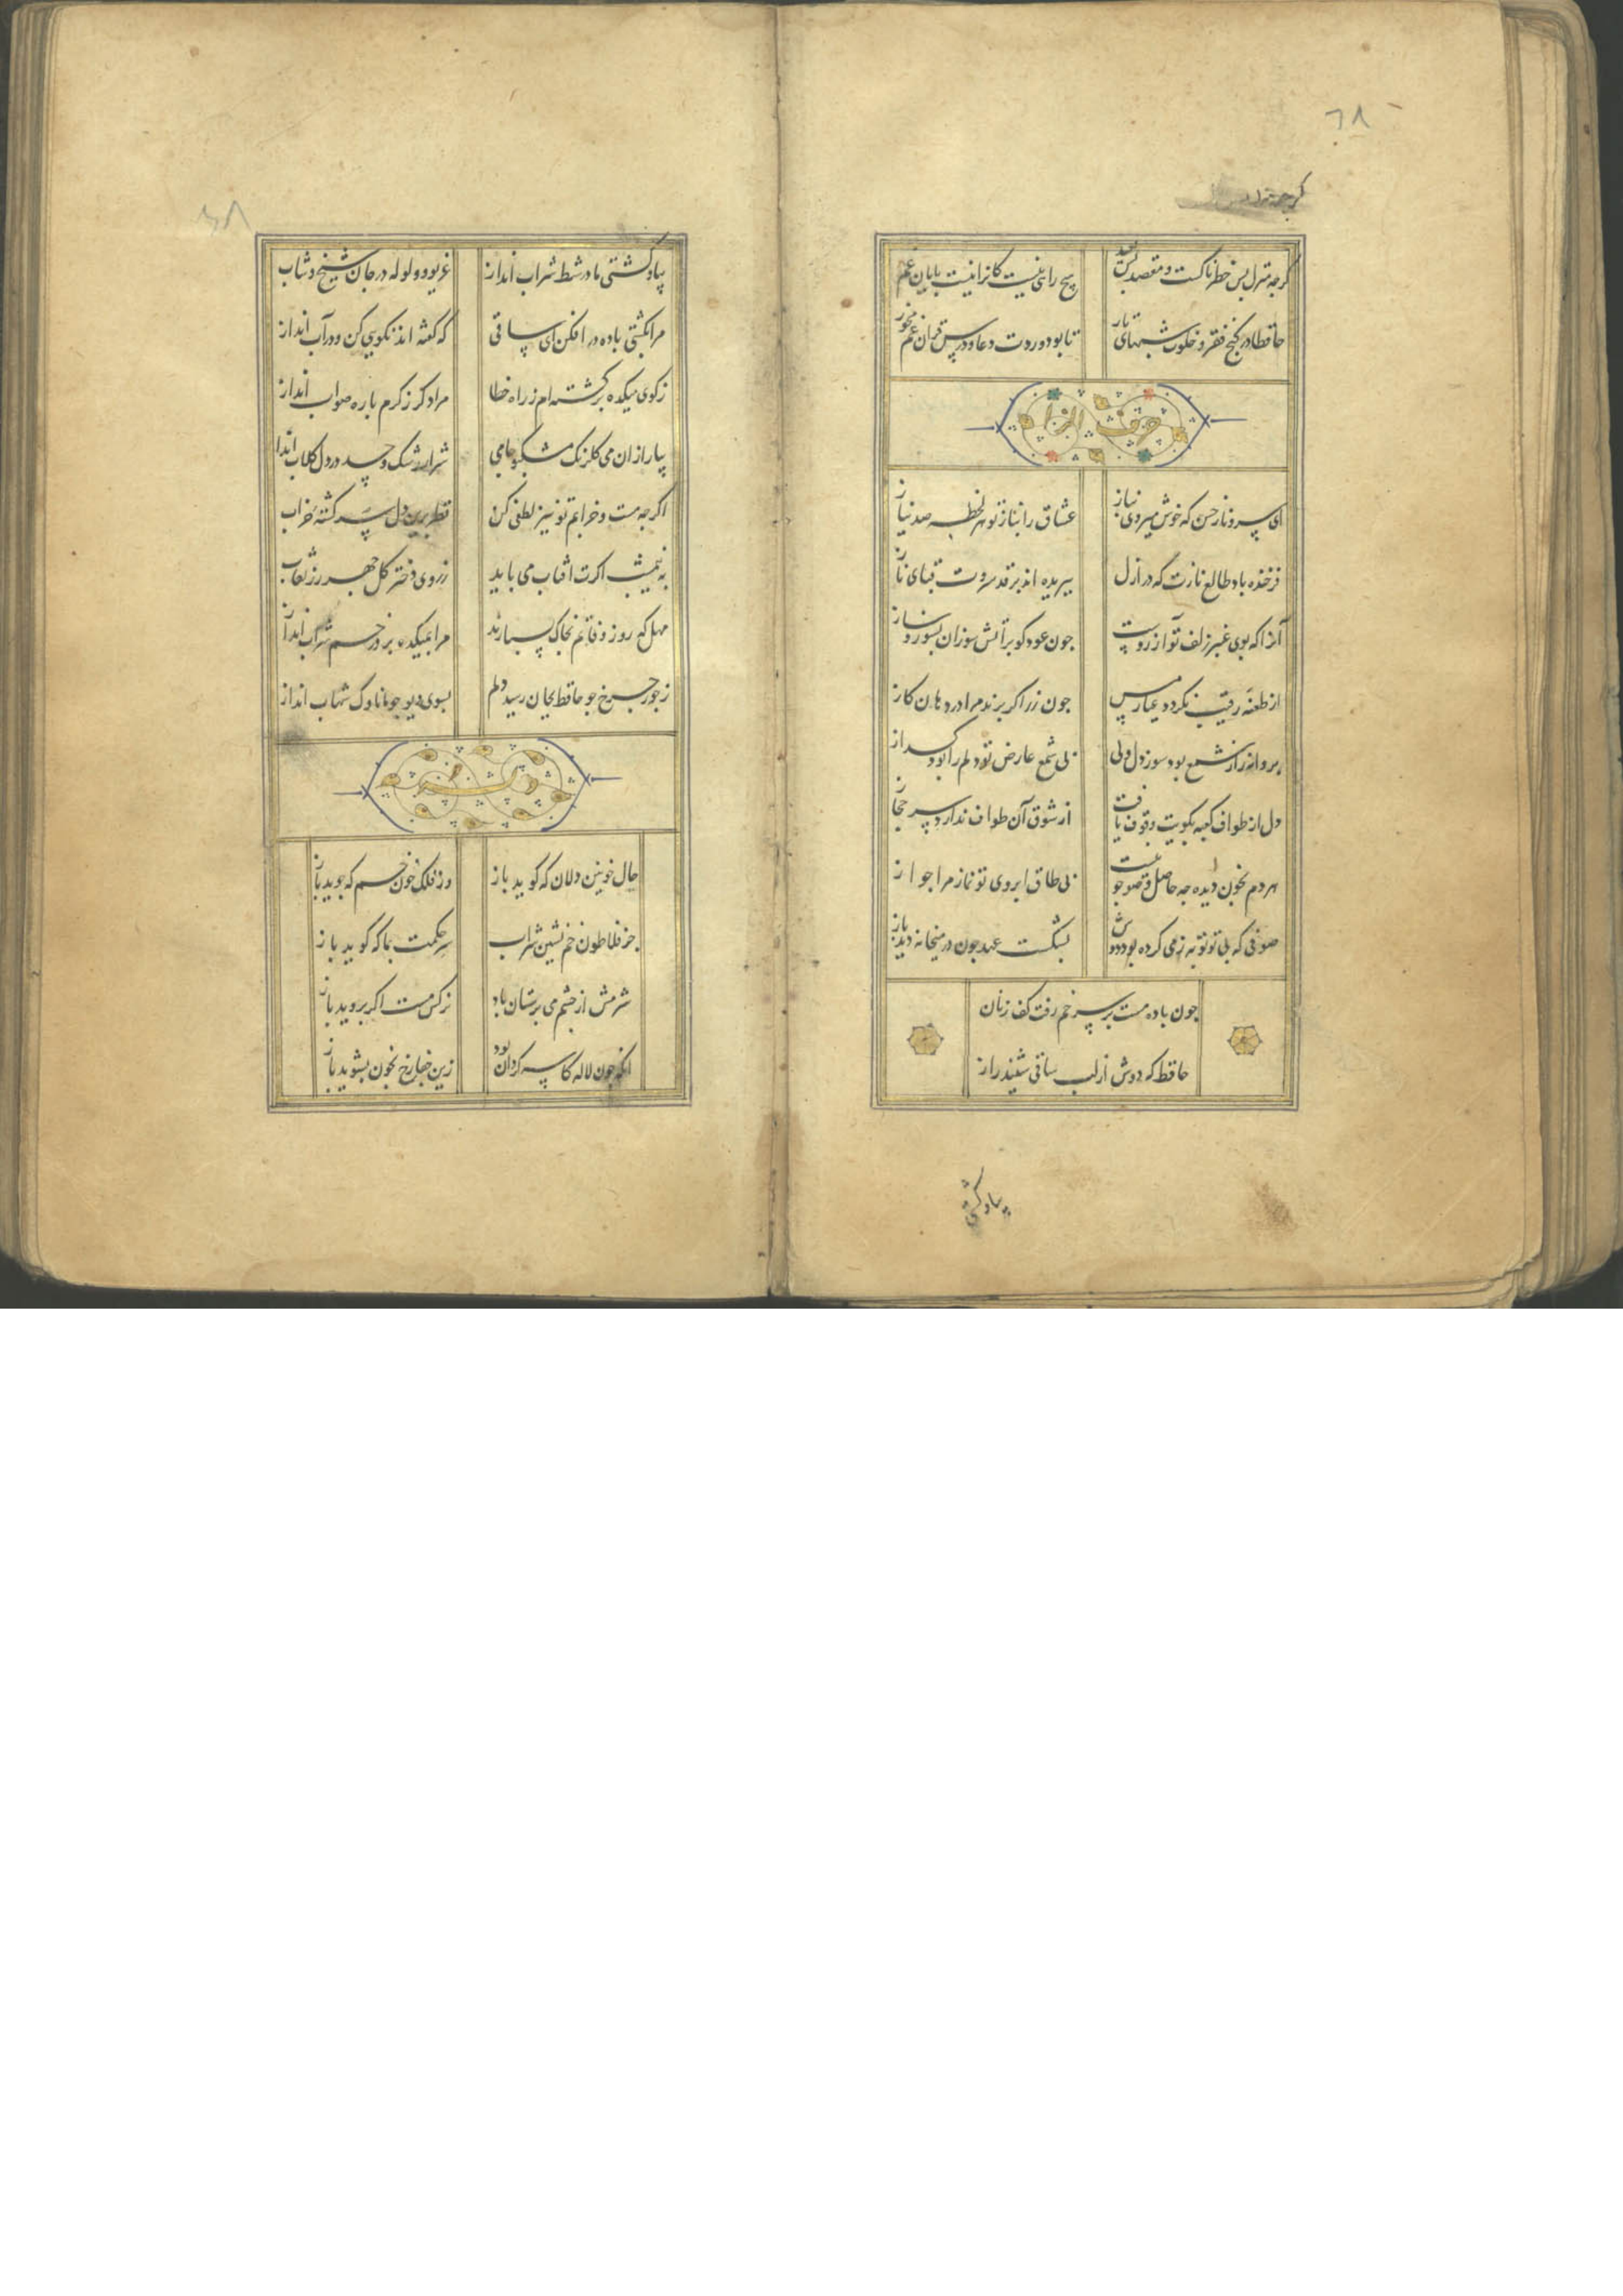 ٦٨
گرچه منزل
گرچه منزل بس خطرناکست و مقصد بس بعید هیچ راهی نیست کانرا نیست پایان غم مخور
حافظا در کنج فقر و خلوت شبهای تار تا بود وردت دعا و درس قرآن غم مخور
حرف الزا
ای سرو ناز حسن که خوش میروی بناز عشاق را بناز تو هر لحظه صد نیاز
فرخنده باد طالع نازت که در ازل ببریده اند بر قد سروت قبای ناز
آنرا که بوی عنبر زلف تو آرزوست چون عود گو بر آتش سوزان بسوز و ساز
از طعنه رقیب نکردد عیار من چون زر اکر برند مرا در دهان کاز
پروانه را ز شمع بود سوز دل ولی بی شمع عارض تو دلم را بود کداز
دل از طواف کعبه بکویت وقوف یافت از شوق آن طواف ندارد سر حجاز
هر دم بخون دیده چه حاصل وضو چو نیست بی طاق ابروی تو نماز مرا جواز
صوفی که بی تو توبه ز می کرده بود دوش بشکست عهد چون در میخانه دید باز
چون باده مست بر سر خم رفت کف زنان
حافظ که دوش از لب ساقی شنید راز
بیا و کشتی
بیا و کشتی ما در شط شراب انداز غریو و ولوله در جان شیخ و شاب
مرا بکشتی باده در افکن ای ساقی که گفته اند نکویی کن و در آب انداز
ز کوی میکده برگشته ام ز راه خطا مرا دکر ز کرم باره صواب انداز
بیار ازان می کلرنگ مشکبو جامی شرار رشک و حسد در دل کلاب انداز
اکرچه مست و خرابم تو نیز لطفی کن نظر برین دل سرکشته خراب
به نیمشب اکرت آفتاب می باید ز روی دختر کل چهر رز نقاب
مهل که روز وفاتم بخاک بسپارند مرا بمیکده بر در خم شراب انداز
ز جور چرخ چو حافظ بجان رسید دلم بسوی دیو چو مانا ناوک شهاب انداز
حال خونین دلان که کوید باز وز فلک خون خم که جوید باز
جز فلاطون خم نشین شراب سر حکمت بما که کوید باز
شرمش از چشم می پرستان باد نرکس مست اکر بروید باز
انکه چون لاله کاسه کردان بود زین جفا رخ بخون بشوید باز